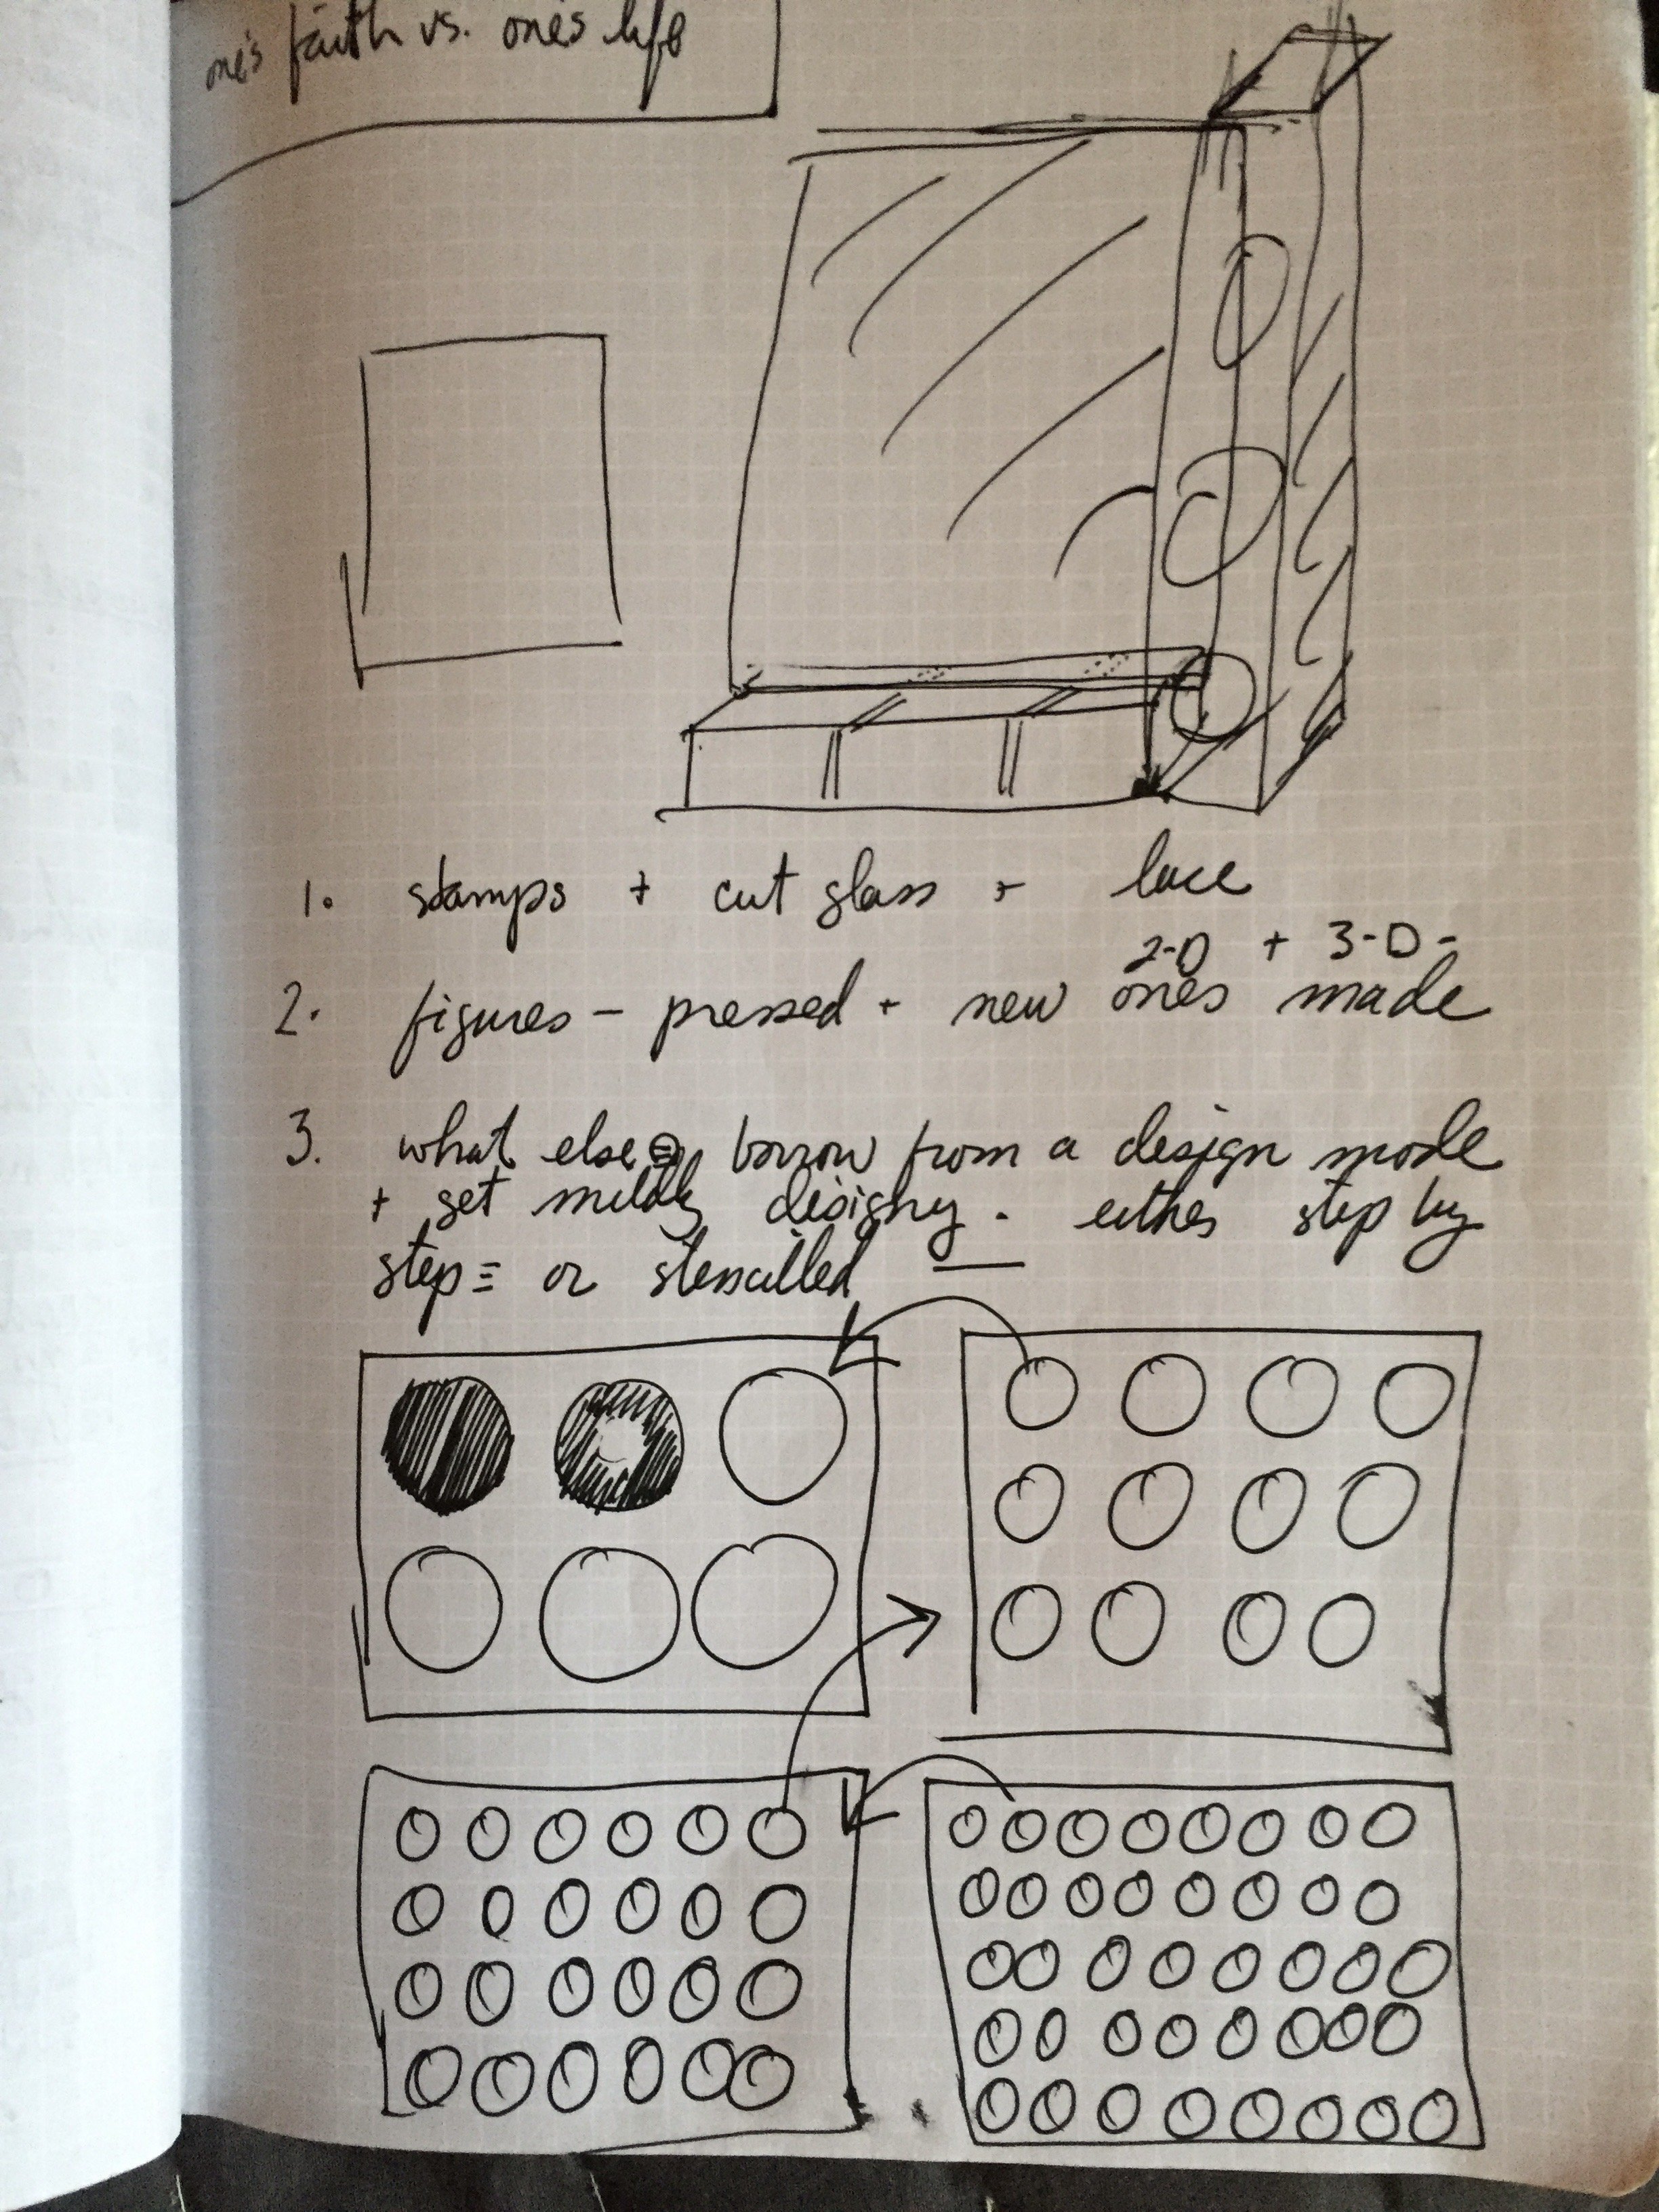 one's faith vs. one's life
1. stamps + cut glass + lace
2-D + 3-D -
2. figures - pressed + new ones made
3. what else borrow from a design mode
+ set mildly . either step by
step = or stenscilled